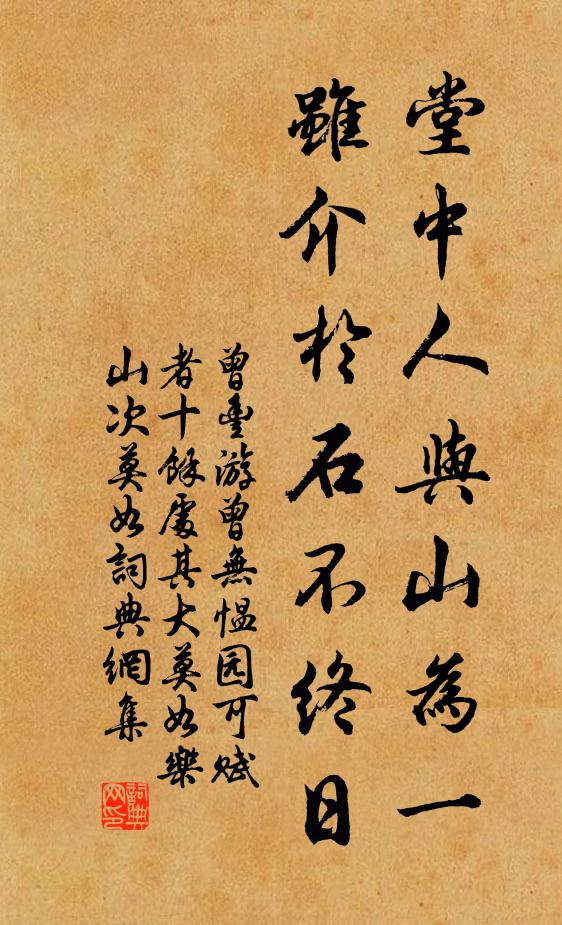 堂中人與山為一
雖介於石不終日
曾豊游曾無愠园可賦
者十餘處其大莫如樂
山次莫如詞典網集
詞典
网印